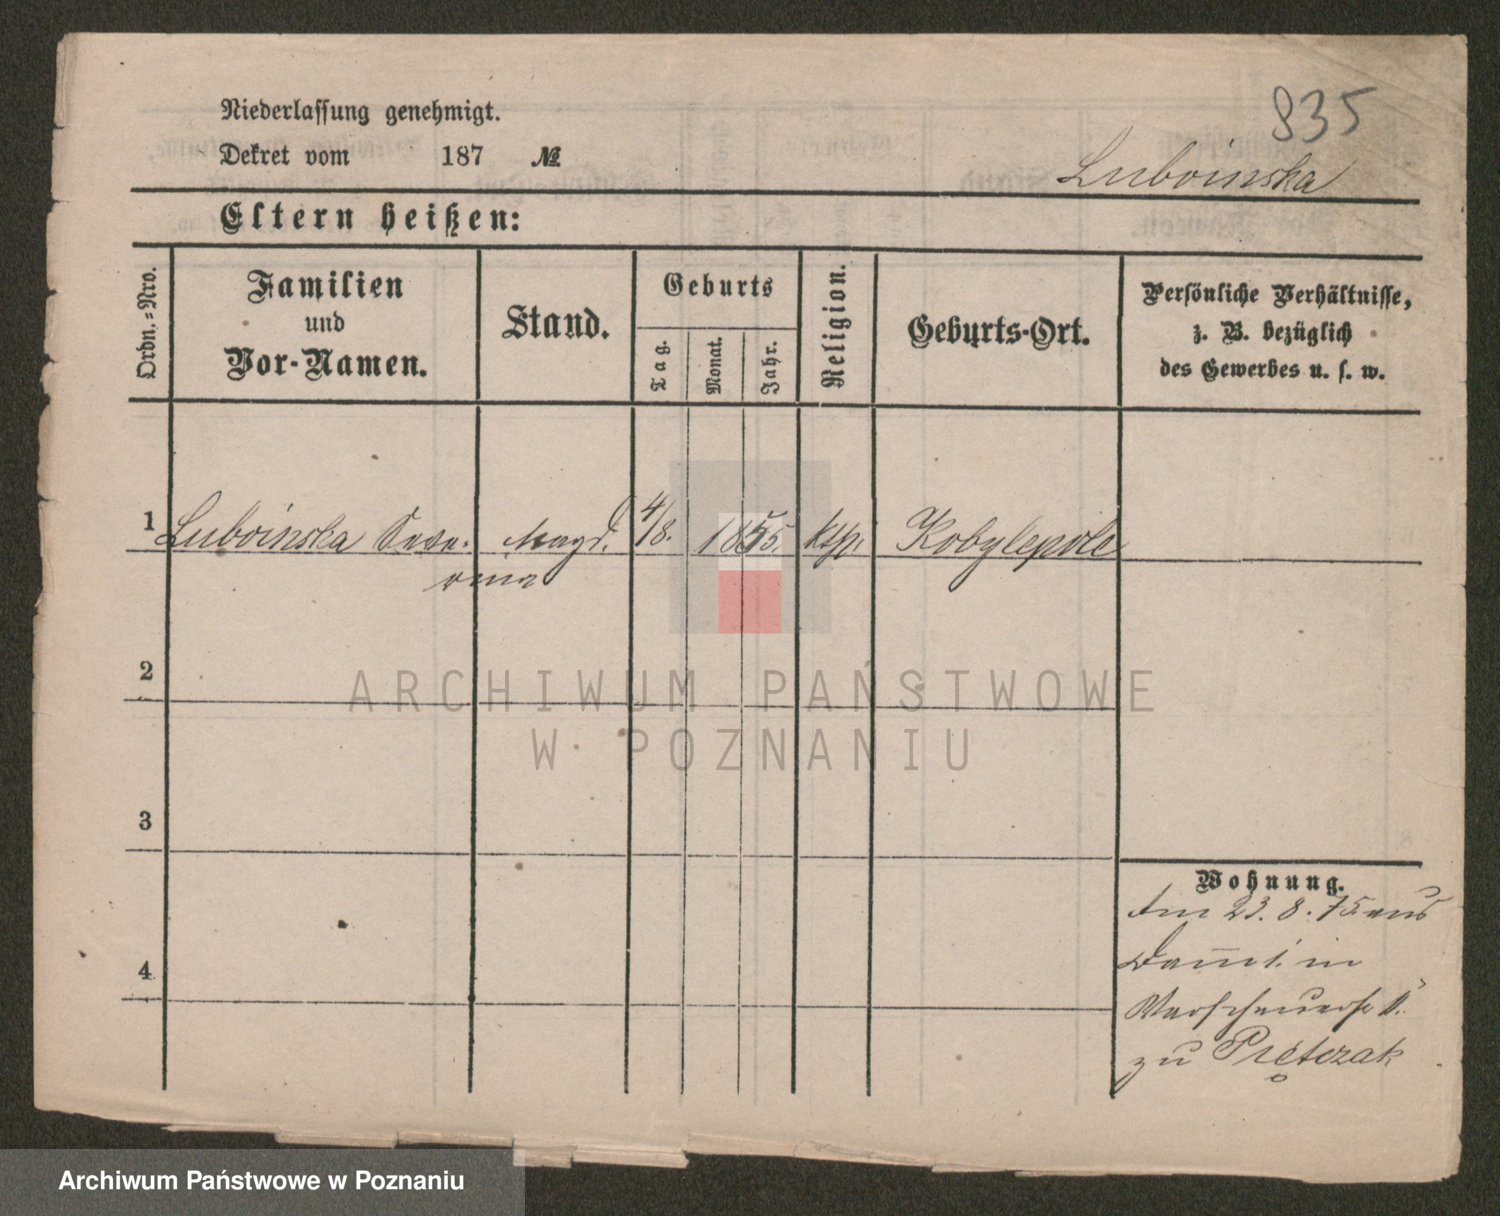 835
Niederlassung genehmigt.
Dekret vom 187 №
Luboinska
Eltern heißen:
Ordn.=Nro.
Familien
und
Vor-Namen.
Stand.
Geburts
Tag.
Monat.
Jahr.
Religion.
Geburts-Ort.
Persönliche Verhältnisse,
z. B. bezüglich
des Gewerbes u. s. w.
1 Luboinska Seve- Magd. 4/8. 1855. kth. Kobylepole
rina
2
3
4
Wohnung.
Am 23. 8. 75 aus
in
zu Piętczak
ARCHIWUM PAŃSTWOWE
W POZNANIU
Archiwum Państwowe w Poznaniu